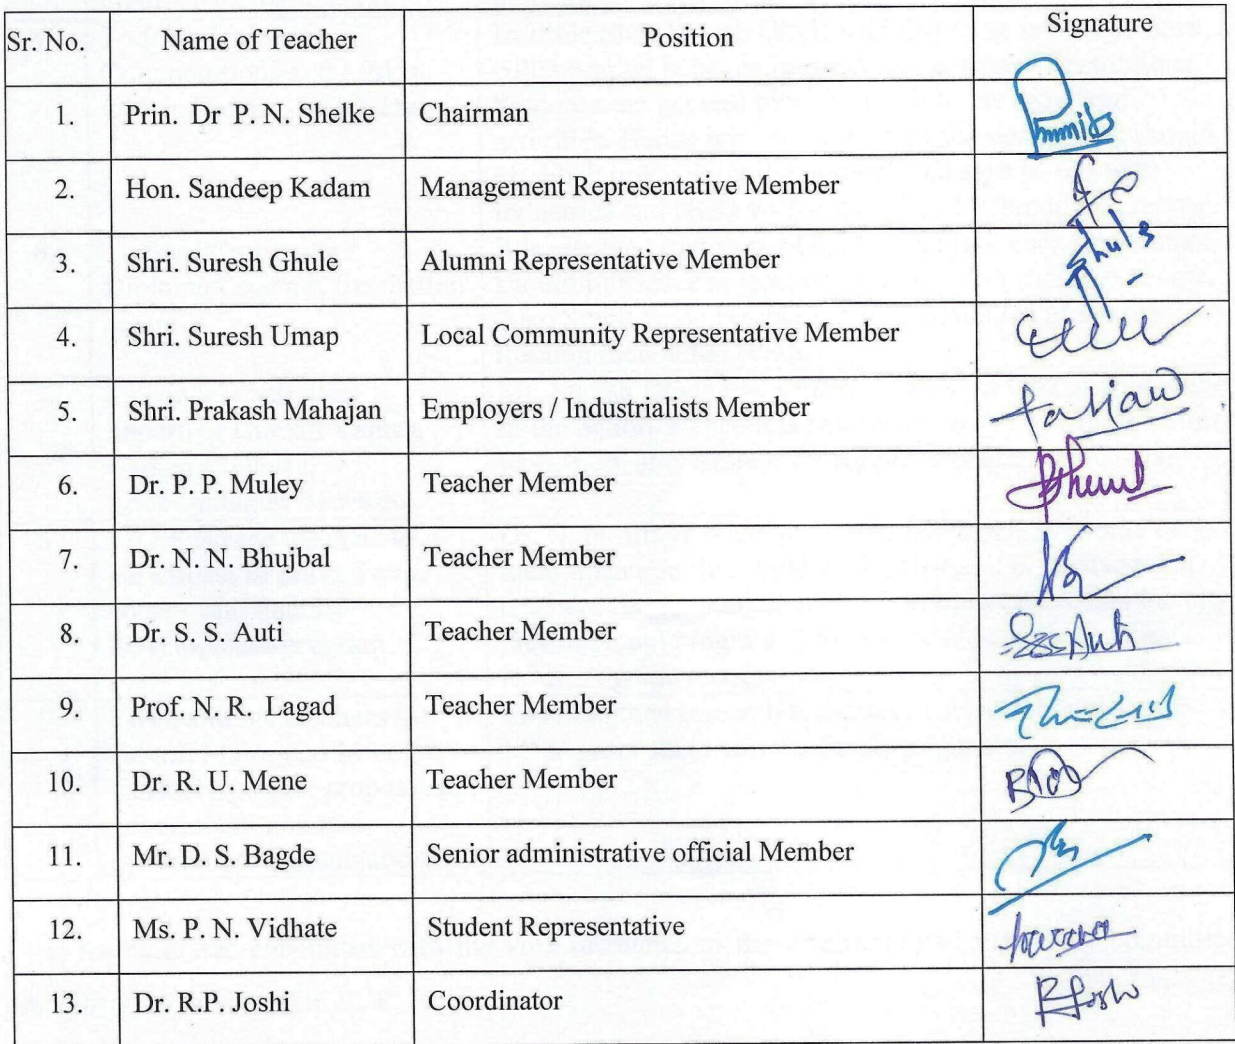 Sr. No. Name of Teacher Position Signature
1. Prin. Dr P. N. Shelke Chairman
2. Hon. Sandeep Kadam Management Representative Member
3. Shri. Suresh Ghule Alumni Representative Member
4. Shri. Suresh Umap Local Community Representative Member
5. Shri. Prakash Mahajan Employers / Industrialists Member
6. Dr. P. P. Muley Teacher Member
7. Dr. N. N. Bhujbal Teacher Member
8. Dr. S. S. Auti Teacher Member SSAuti
9. Prof. N. R. Lagad Teacher Member
10. Dr. R. U. Mene Teacher Member
11. Mr. D. S. Bagde Senior administrative official Member
12. Ms. P. N. Vidhate Student Representative
13. Dr. R.P. Joshi Coordinator